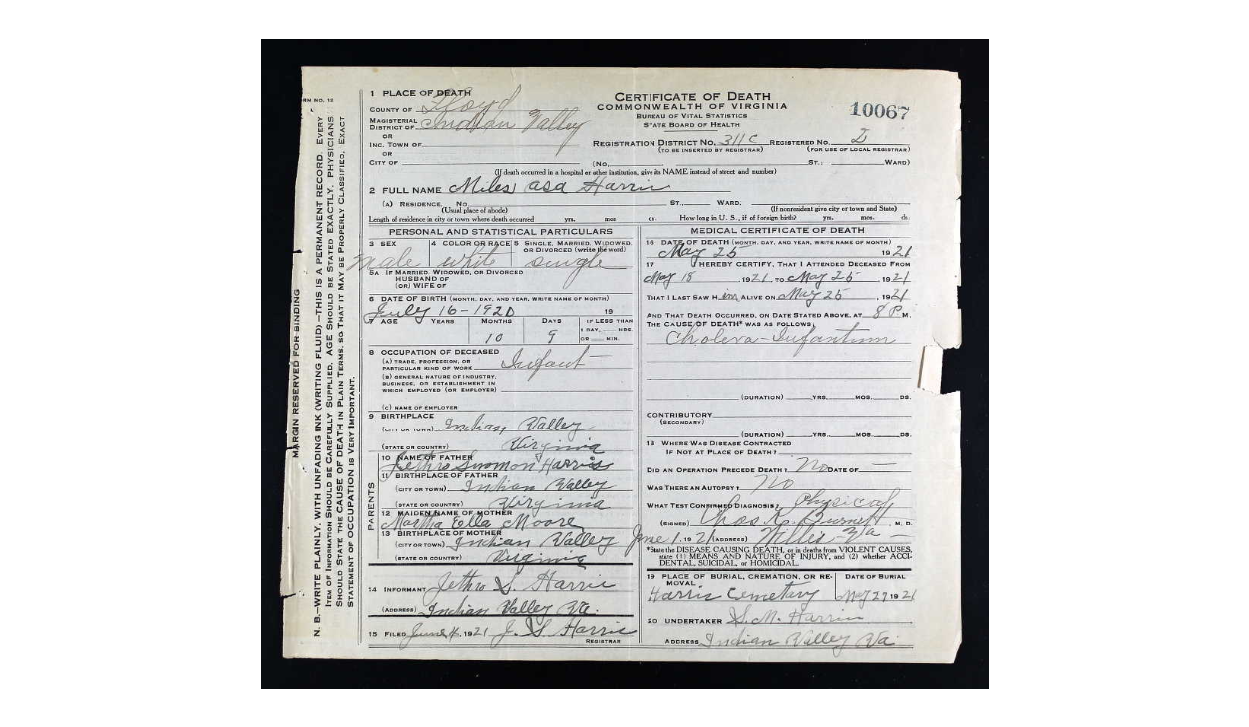 RM NO. 12
MARGIN RESERVED FOR BINDING
N. B.—WRITE PLAINLY, WITH UNFADING INK (WRITING FLUID)—THIS IS A PERMANENT RECORD. EVERY
ITEM OF INFORMATION SHOULD BE CAREFULLY SUPPLIED. AGE SHOULD BE STATED EXACTLY. PHYSICIANS
SHOULD STATE THE CAUSE OF DEATH IN PLAIN TERMS, SO THAT IT MAY BE PROPERLY CLASSIFIED. EXACT
STATEMENT OF OCCUPATION IS VERY IMPORTANT.
1 PLACE OF DEATH
COUNTY OF Floyd
MAGISTERIAL DISTRICT OF Indian Valley
OR
INC. TOWN OF
OR
CITY OF
CERTIFICATE OF DEATH
COMMONWEALTH OF VIRGINIA
BUREAU OF VITAL STATISTICS
STATE BOARD OF HEALTH
10067
REGISTRATION DISTRICT NO. 311C REGISTERED NO.
(TO BE INSERTED BY REGISTRAR) (FOR USE OF LOCAL REGISTRAR)
(NO. ST.; WARD)
(If death occurred in a hospital or other institution, give its NAME instead of street and number)
2 FULL NAME Miles asa Harris
(A) RESIDENCE, NO. ST., WARD.
(Usual place of abode) (If nonresident give city or town and State)
Length of residence in city or town where death occurred yrs. mos. ds. How long in U. S., if of foreign birth? yrs. mos. ds.
PERSONAL AND STATISTICAL PARTICULARS
3 SEX 4 COLOR OR RACE 5 SINGLE, MARRIED, WIDOWED,
OR DIVORCED (write the word)
male white single
5A IF MARRIED, WIDOWED, OR DIVORCED
HUSBAND OF
(OR) WIFE OF
6 DATE OF BIRTH (MONTH, DAY, AND YEAR, WRITE NAME OF MONTH)
July 16-1920 19
7 AGE YEARS MONTHS DAYS IF LESS THAN
1 DAY, HRS.
OR MIN.
10 9
8 OCCUPATION OF DECEASED
(A) TRADE, PROFESSION, OR
PARTICULAR KIND OF WORK Infant
(B) GENERAL NATURE OF INDUSTRY,
BUSINESS, OR ESTABLISHMENT IN
WHICH EMPLOYED (OR EMPLOYER)
(C) NAME OF EMPLOYER
9 BIRTHPLACE
(CITY OR TOWN) Indian Valley
(STATE OR COUNTRY) Virginia
PARENTS
10 NAME OF FATHER
Jethro Harris
11 BIRTHPLACE OF FATHER
(CITY OR TOWN) Indian Valley
(STATE OR COUNTRY) Virginia
12 MAIDEN NAME OF MOTHER
Martha Ella Moore
13 BIRTHPLACE OF MOTHER
(CITY OR TOWN) Indian Valley
(STATE OR COUNTRY) Virginia
14 INFORMANT Jethro S. Harris
(ADDRESS) Indian Valley Va.
15 FILED June 4, 1921 J. S. Harris
REGISTRAR
MEDICAL CERTIFICATE OF DEATH
16 DATE OF DEATH (MONTH, DAY, AND YEAR, WRITE NAME OF MONTH)
May 25 1921
17 I HEREBY CERTIFY, THAT I ATTENDED DECEASED FROM
May 18 1921, TO May 25, 1921
THAT I LAST SAW H im ALIVE ON May 25, 1921
AND THAT DEATH OCCURRED, ON DATE STATED ABOVE, AT 8 P M.
THE CAUSE OF DEATH* WAS AS FOLLOWS:
Cholera-Infantum
(DURATION) YRS. MOS. DS.
CONTRIBUTORY
(SECONDARY)
(DURATION) YRS. MOS. DS.
18 WHERE WAS DISEASE CONTRACTED
IF NOT AT PLACE OF DEATH?
DID AN OPERATION PRECEDE DEATH? No DATE OF —
WAS THERE AN AUTOPSY? No
WHAT TEST CONFIRMED DIAGNOSIS? Physical
(SIGNED) Chas. Burnett M. D.
June 1, 1921 (ADDRESS) Willis Va
*State the DISEASE CAUSING DEATH, or in deaths from VIOLENT CAUSES,
state (1) MEANS AND NATURE OF INJURY, and (2) whether ACCI-
DENTAL, SUICIDAL, or HOMICIDAL.
19 PLACE OF BURIAL, CREMATION, OR RE- DATE OF BURIAL
MOVAL
Harris Cemetery May 27 1921
20 UNDERTAKER S. M. Harris
ADDRESS Indian Valley Va.